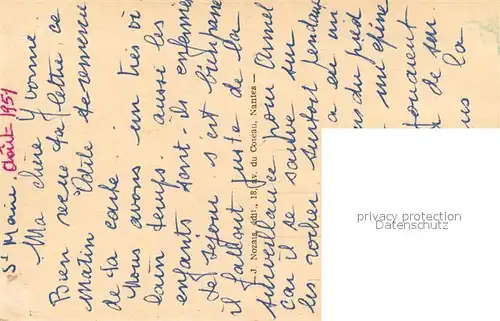 St Marc. Août 1951
Ma chère Yvonne
Bien reçu ta lettre, ce
matin Odile te remercie
de ta carte.
Nous avons un très vi
lain temps. aussi les
enfants sont-ils enfermés
Le séjour s'est bien passé
il fallait juste de la
surveillance pour Armel
car il se sauve sur
les rocher surtout pendant
a eu un
du pied
une épine
jouaient
de sa
la
J. Nozais, édit., 18, av. du Coteau, Nantes
privacy protection
Datenschutz